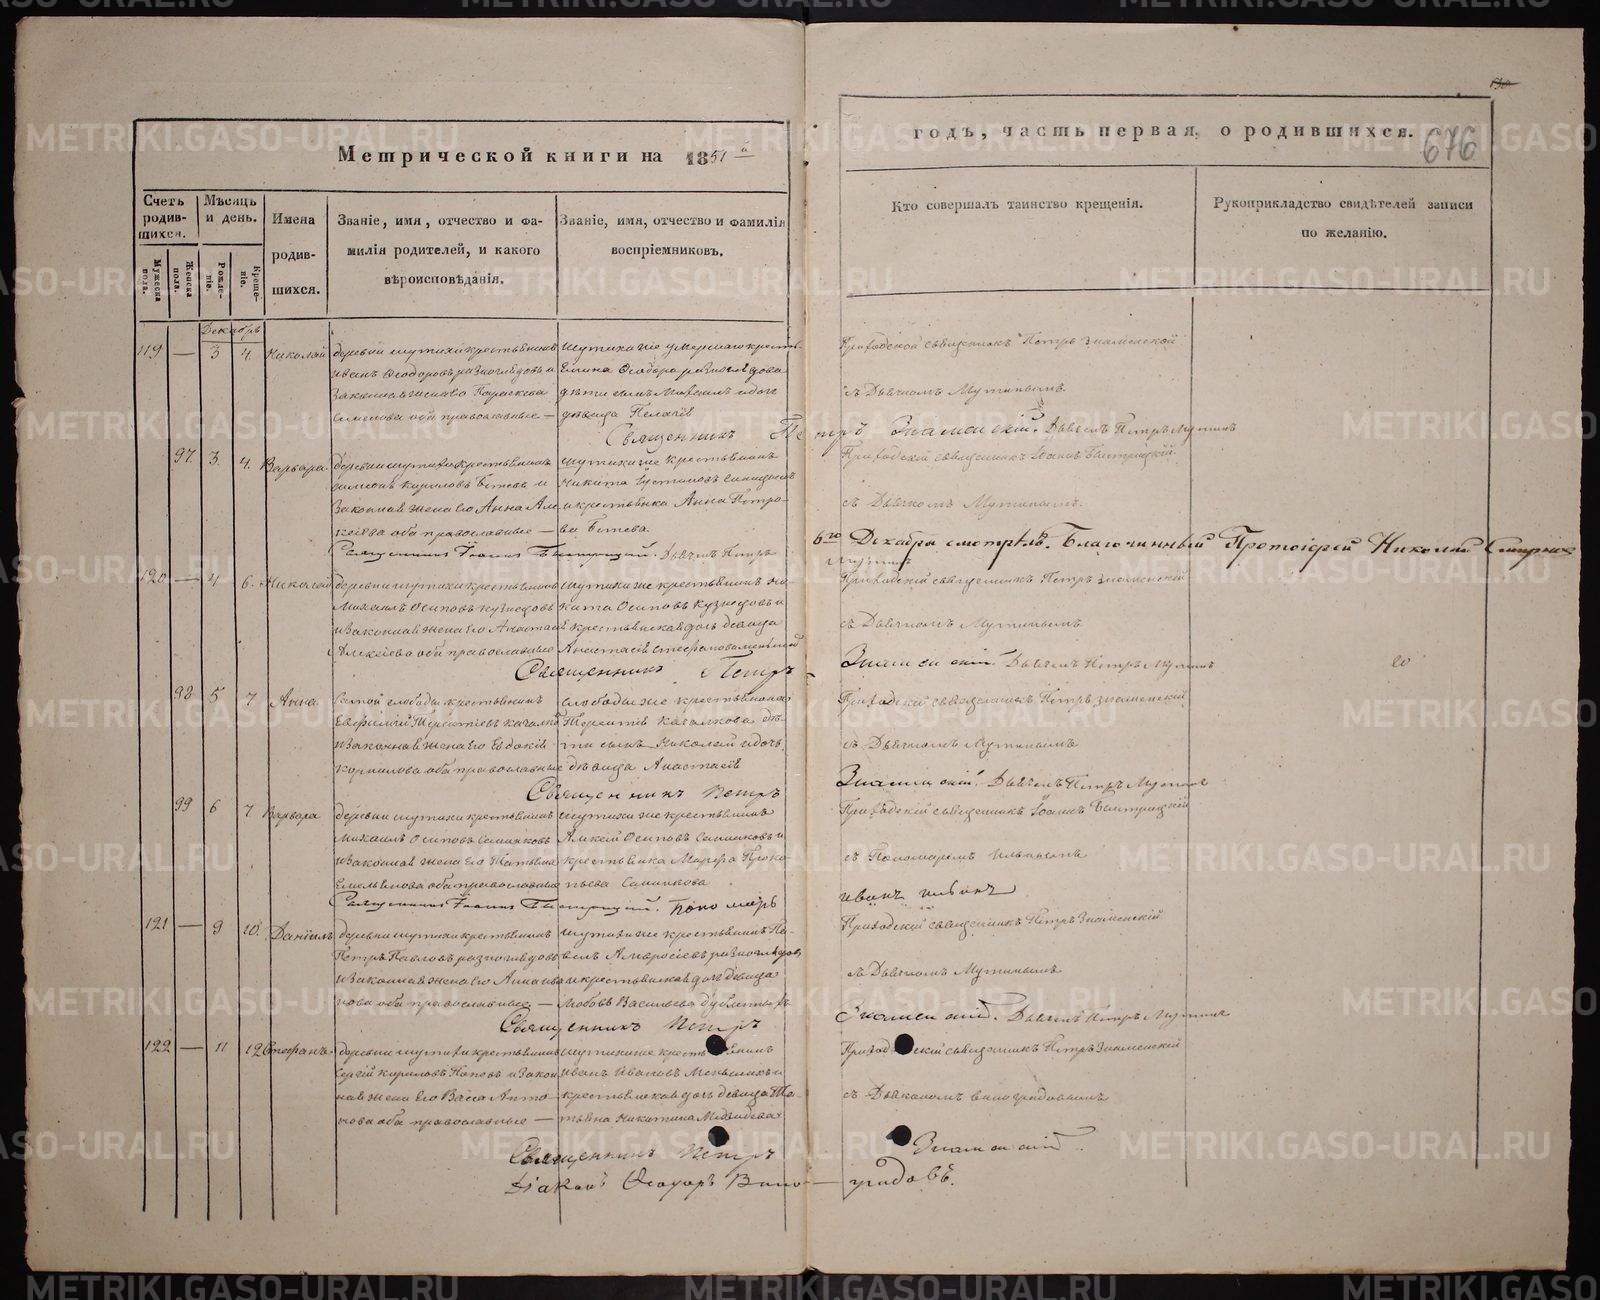 Метрической книги на 1851й
годъ, часть первая, о родившихся.
676
Счетъ родив-шихся.
Мѣсяць и день.
Имена родив-шихся.
Званіе, имя, отчество и фа-
милія родителей, и какого
вѣроисповѣданія.
Званіе, имя, отчество и фамилія
воспріемниковъ.
Кто совершалъ таинство крещенія.
Рукоприкладство свидѣтелей записи
по желанію.
Мужеска пола.
Женска пола.
Рожде-ніе.
Креще-ніе.
Декабрь
119 — 3 4. Николай
деревни Шутихи крестьянинъ
Иванъ Ѳеодоровъ
законная жена его Параскева
оба православные —
Шутихи же умершаго кресть-
Ѳеодора
дѣти сынъ и дочь
дѣвица Пелагія
Приходской священникъ Петръ Знаменской
съ Дьячкомъ Мутинымъ.
Священникъ Петръ Знаменскій. Дьячекъ Петръ Мутинъ
97. 3. 4. Варвара
деревни Шутихи крестьянинъ
Кириловъ и
законная жена его Анна Але-
ксѣева оба православные —
Шутихи же крестьянинъ
Никита
и крестьянка Анна Петро-
ва
Приходской священникъ Іоаннъ Быстрицкій
съ Дьячкомъ Мутинымъ.
Священникъ Іоаннъ Быстрицкій. Дьячекъ Петръ
Мутинъ
6го Декабря смотрѣлъ. Благочинный Протоіерей Николай
120 — 4 6. Николай
деревни Шутихи крестьянинъ
Михаилъ Осиповъ Кузнецовъ
и законная жена его Анастасія
Алексѣева оба православные
Шутихи же крестьянинъ Ни-
кита Осиповъ Кузнецовъ и
крестьянская дочь дѣвица
Анастасія Стефанова
Приходской священникъ Петръ Знаменской
съ Дьячкомъ Мутинымъ
Священникъ Петръ Знаменскій. Дьячекъ Петръ Мутинъ
98 5 7 Анна
Самой слободы крестьянинъ
Евфимій Терентіевъ
и законная жена его Евдокія
Корнилова оба православные
слободы же крестьянина
Терентія Качалкова дѣ-
ти сынъ Николай и дочь
дѣвица Анастасія
Приходской священникъ Петръ Знаменскій
съ Дьячкомъ Мутинымъ
Священникъ Петръ Знаменскій. Дьячекъ Петръ Мутинъ
99 6 7 Варвара
деревни Шутихи крестьянинъ
Михаилъ Осиповъ
и законная жена его Татьяна
Емельянова оба православные
Шутихи же крестьянинъ
Осиповъ и
крестьянка Марфа Проко-
пьева
Приходской священникъ Іоаннъ Быстрицкій
съ Пономаремъ Ильинымъ
Священникъ Іоаннъ Быстрицкій. Пономарь Иванъ Ильинъ
121 — 9 10. Даніилъ
деревни Шутихи крестьянинъ
Петръ Павловъ
и законная жена его Анна Ива-
нова оба православные —
Шутихи же крестьянинъ Па-
велъ Амвросіевъ
и крестьянская дочь дѣвица
Любовь Васильева
Приходской священникъ Петръ Знаменскій
съ Дьячкомъ Мутинымъ
Священникъ Петръ Знаменскій. Дьячекъ Петръ Мутинъ
122 — 11 12 Стефанъ
деревни Шутихи крестьянинъ
Сергій Кириловъ Поповъ и закон-
ная жена его Васса Анто-
нова оба православные —
Шутихи же крестьянинъ
Иванъ Ивановъ и
крестьянская дочь дѣвица Та-
тьяна Никитина Медвѣдева
Приходской священникъ Петръ Знаменскій
съ Діакономъ Виноградовымъ
Священникъ Петръ Знаменскій.
Діаконъ Ѳеодоръ Виноградовъ.
METRIKI.GASO-URAL.RU